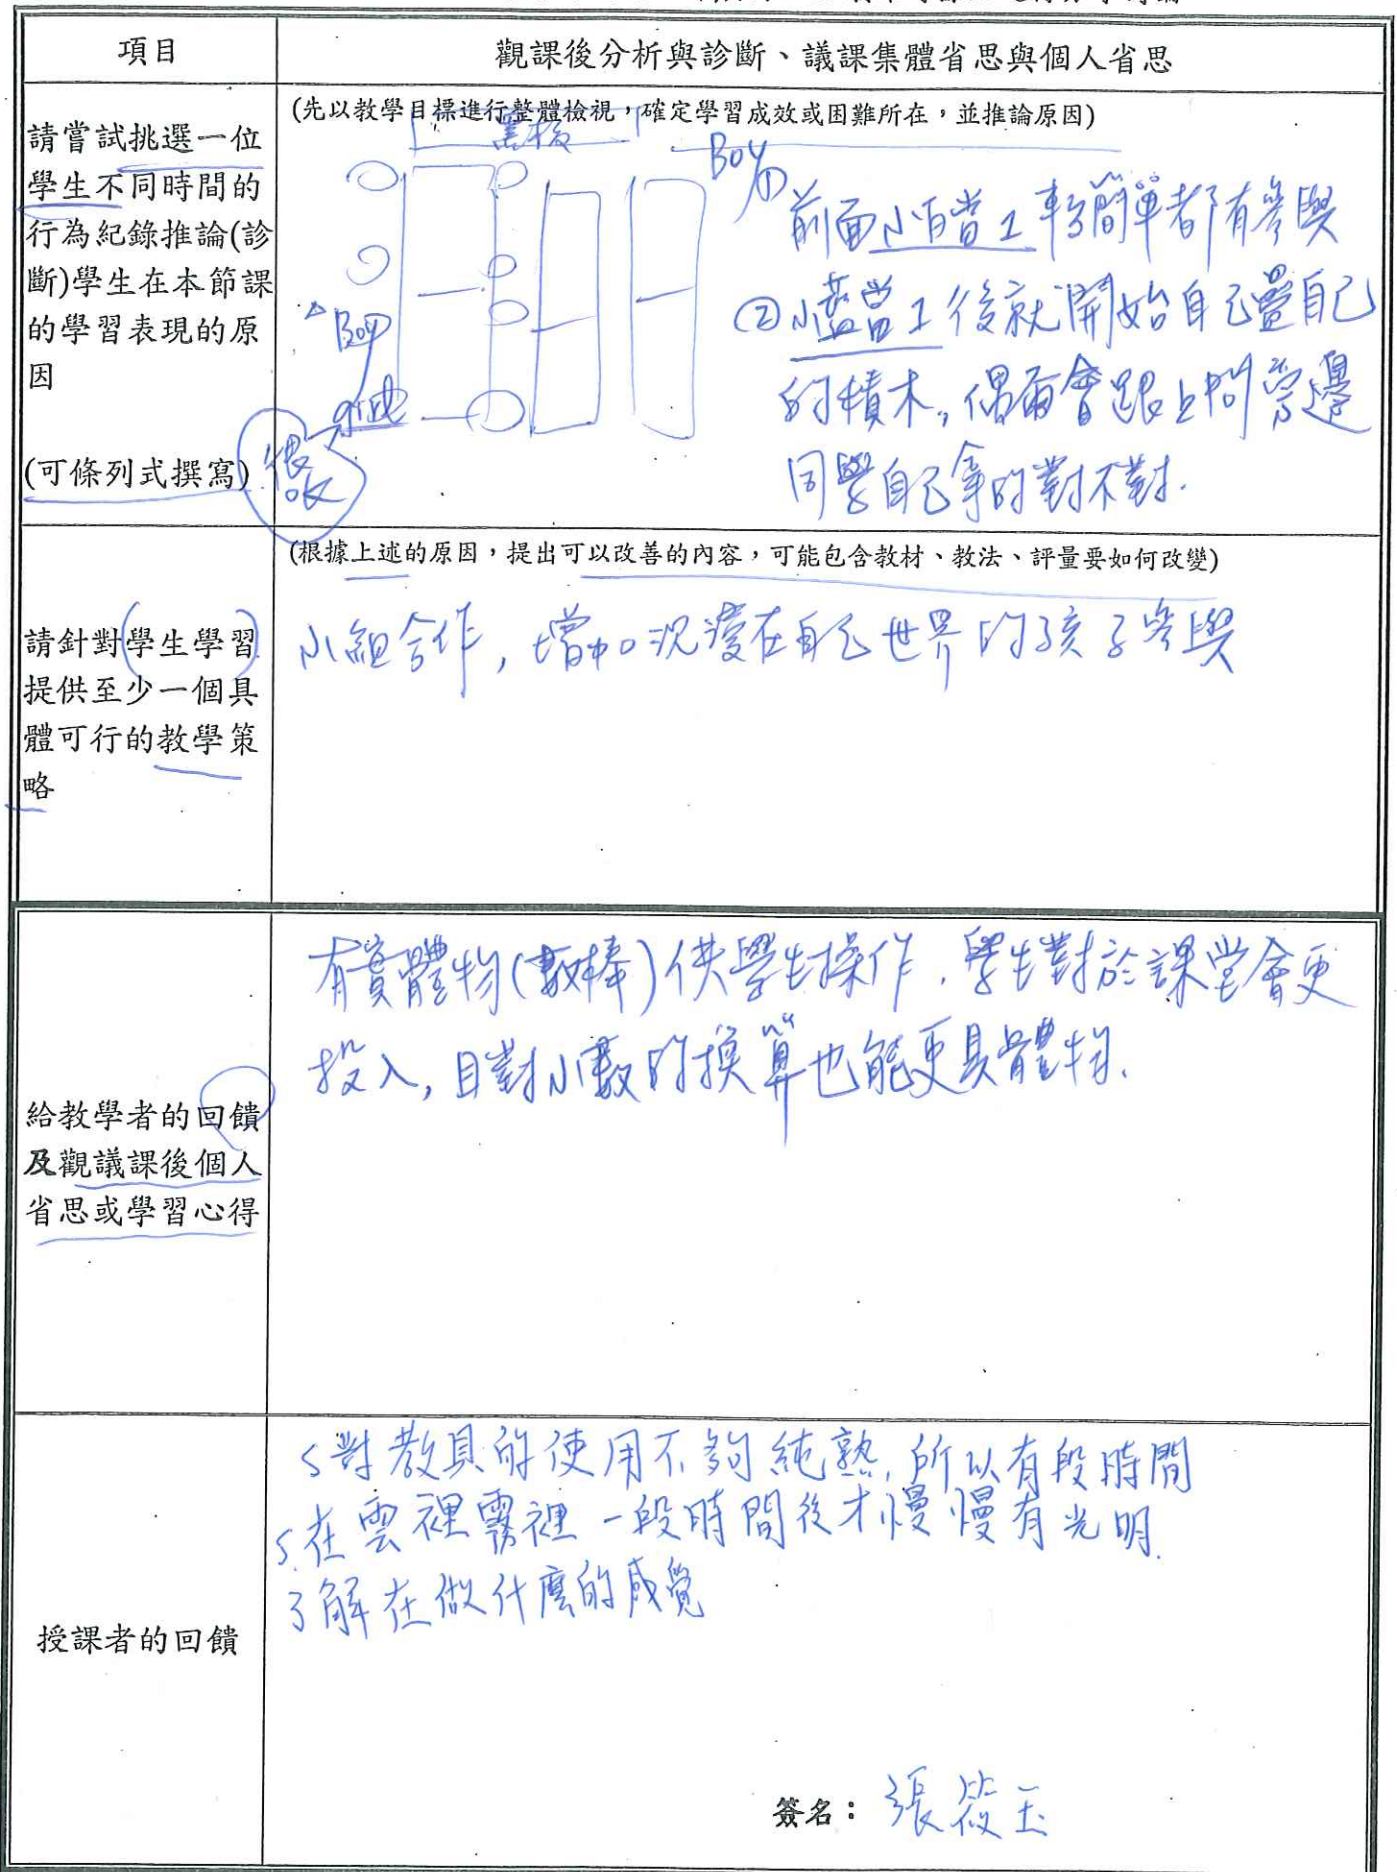 項目
觀課後分析與診斷、議課集體省思與個人省思
請嘗試挑選一位
學生不同時間的
行為紀錄推論(診
斷)學生在本節課
的學習表現的原
因
(可條列式撰寫)
(先以教學目標進行整體檢視，確定學習成效或困難所在，並推論原因)
黑板
Boy
girl
Boy
① 前面小白當1較簡單都有參與
②小藍當1後就開始自己疊自己
的積木,偶爾會跟上問旁邊
同學自己拿的對不對.
請針對(學生學習)
提供至少一個具
體可行的教學策
略
(根據上述的原因，提出可以改善的內容，可能包含教材、教法、評量要如何改變)
小組合作,增加沉浸在自己世界的孩子參與
給教學者的回饋
及觀議課後個人
省思或學習心得
有實體物(數棒)供學生操作,學生對於課堂會更
投入,且對小數的換算也能更具體物.
授課者的回饋
S對教具的使用不夠純熟,所以有段時間
S.在雲裡霧裡一段時間後才慢慢有光明.
了解在做什麼的感覺
簽名：張筱玉